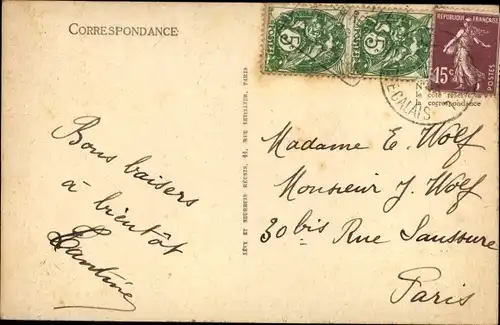 CORRESPONDANCE
5
POSTES
5
RÉPUBLIQUE FRANÇAISE
15c
POSTES
CALAIS
côté réservé
correspondance
LÉVY ET NEURDEIN RÉUNIS, 44, RUE LETELLIER, PARIS
Bons baisers
à bientôt
Madame E. Wolf
Monsieur J. Wolf
30 bis Rue Saussure
Paris